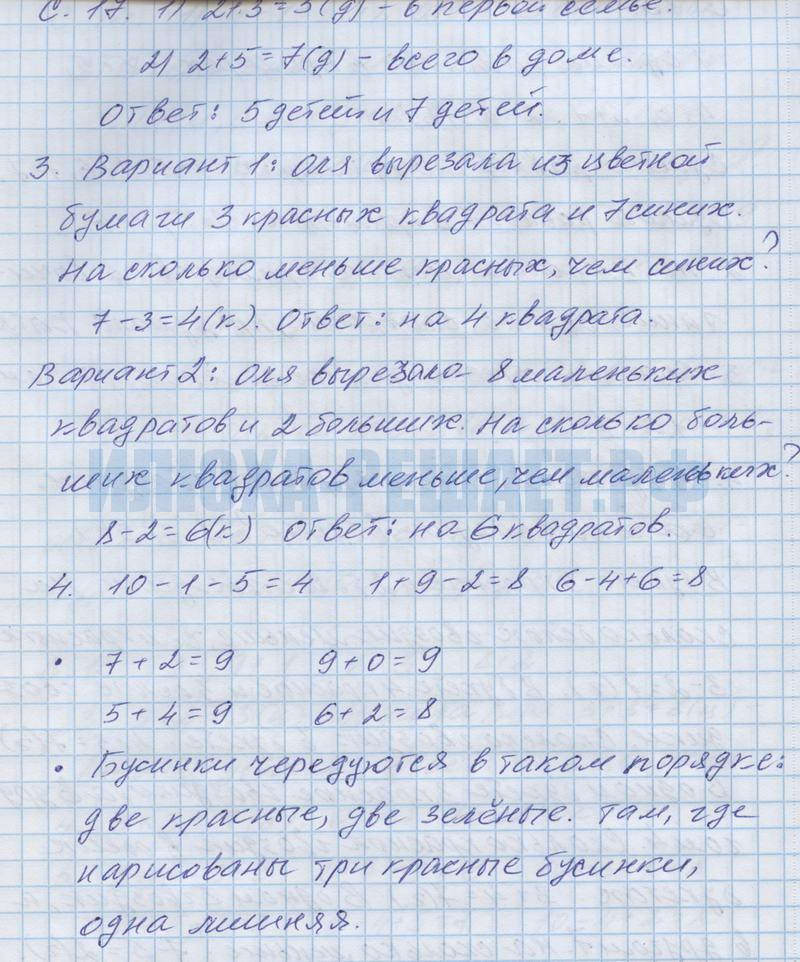 С. 17. 1) 2+3=5(д) - в первой семье.
2) 2+5=7(д) - всего в доме.
Ответ: 5 детей и 7 детей.
3. Вариант 1: Оля вырезала из цветной
бумаги 3 красных квадрата и 7 синих.
На сколько меньше красных, чем синих?
7-3=4(к). Ответ: на 4 квадрата.
Вариант 2: Оля вырезала 8 маленьких
квадратов и 2 больших. На сколько боль-
ших квадратов меньше, чем маленьких?
ИЛЮХА-РЕШАЕТ.РФ
8-2=6(к) Ответ: на 6 квадратов.
4. 10-1-5=4 1+9-2=8 6-4+6=8
• 7+2=9 9+0=9
5+4=9 6+2=8
• Бусинки чередуются в таком порядке:
две красные, две зелёные. Там, где
нарисованы три красные бусинки,
одна лишняя.